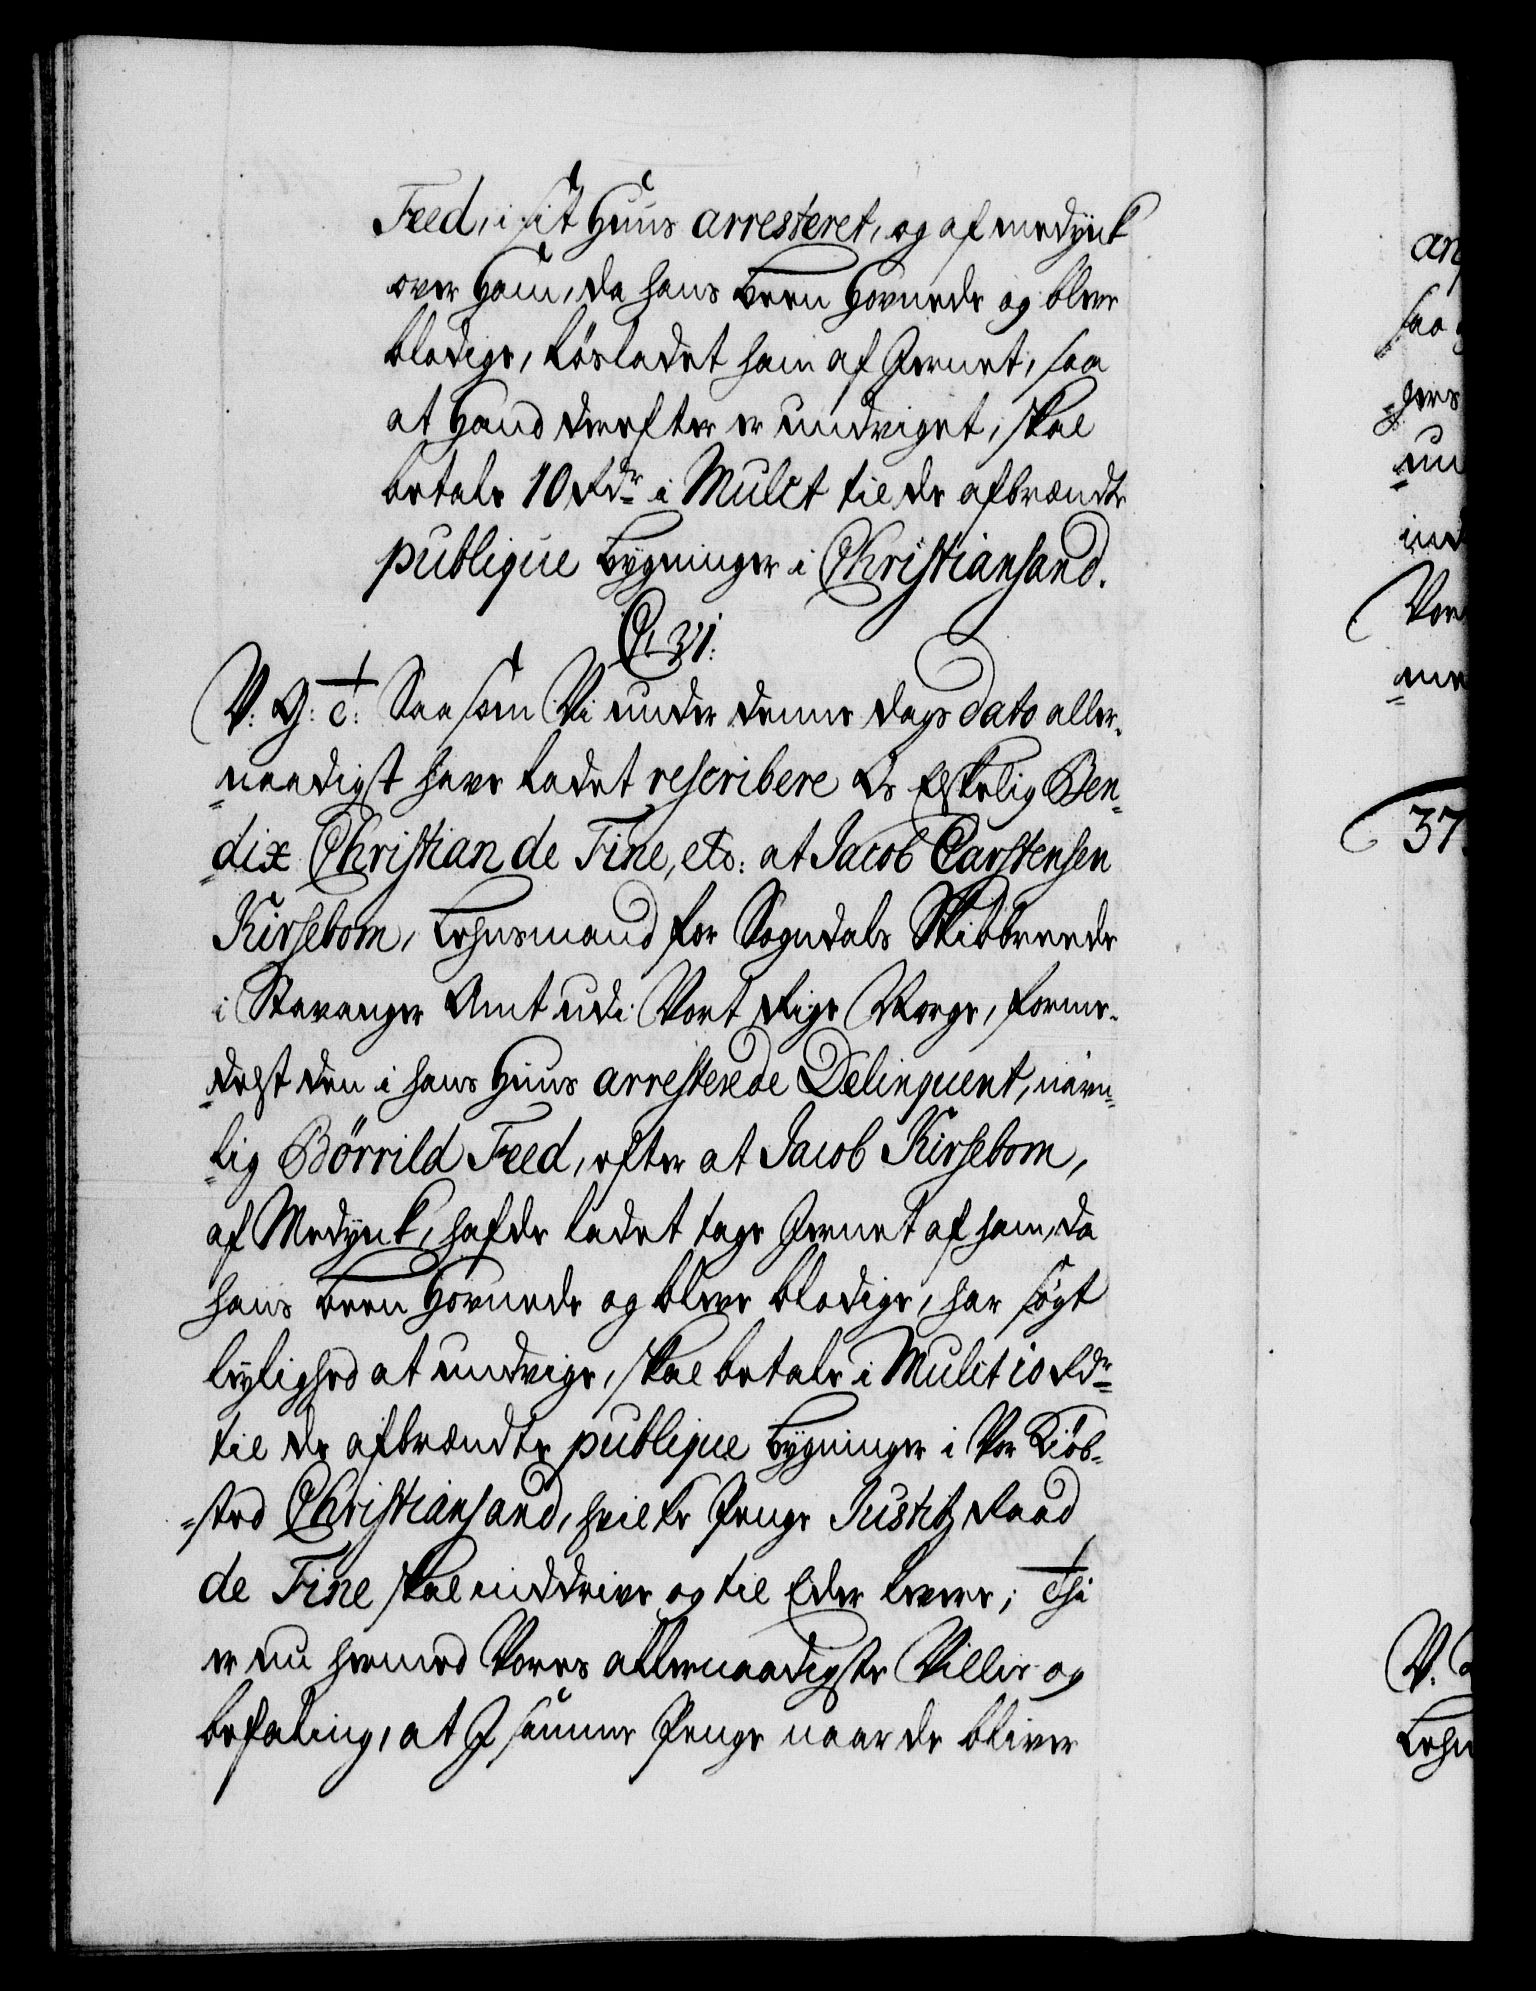 Feed, i sit Huus arresteret, og af medynck
over Ham, da hans Been Hovnede og bleve
blodige, Løsladet ham af Jernet, saa
at Hand derefter er undviget, skal
betale 10 Rdr i Mulct til de afbrændte
publique Bygninger i Christiansand.
C. VI:
V: G: T: Saasom Vi under denne dags dato aller-
naadigst have ladet rescribere Os Elskelig Ben-
dix Christian de Fine, etc: at Jacob Carstensen
Kirsebom, Lehnsmand for Sogndals Skibbreede
i Stavanger Amt udi Vort Rige Norge, forme-
delst den i hans Huus arresterede Delinquent, nävn-
lig Börrild Feed, efter at Jacob Kirsebom,
af Medynck, hafde ladet tage Jernet af ham, da
hans Been Hovnede og bleve blodige, har søgt
leylighed at undvige, skal betale i Mulct 10 Rdr
til de afbrændte publique Bygninger i Vor Kiøb-
sted Christiansand, hvilke Penge Justitz Raad
de Fine skal inddrive og til Eder levere; Thi
er nu hermed Vores allernaadigste Villie og
befaling, at I samme Penge naar de bliver